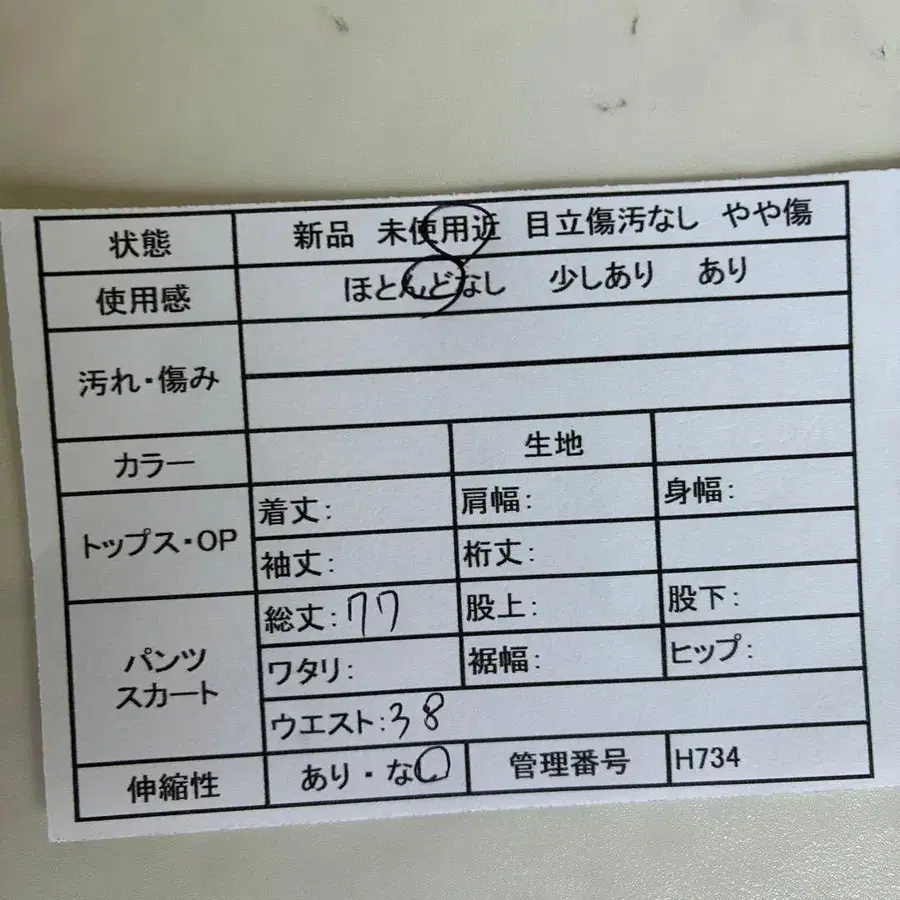 状態 新品 未使用近 目立傷汚なし やや傷
使用感 ほとんどなし 少しあり あり
汚れ・傷み
カラー 生地
トップス・OP 着丈: 肩幅: 身幅:
袖丈: 裄丈:
パンツ スカート 総丈:77 股上: 股下:
ワタリ: 裾幅: ヒップ:
ウエスト:38
伸縮性 あり・なし 管理番号 H734